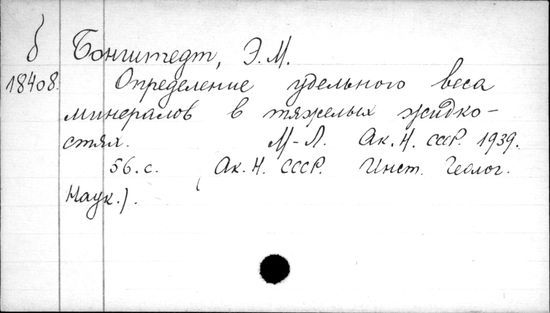 б Бонштедт, Э. М.
18408. Определение удельного веса
минералов в тяжелых жидко-
стях. М-Л. Ак. Н. СССР. 1939.
56. с. (Ак. Н. СССР. Инст. Геолог.
Наук.).